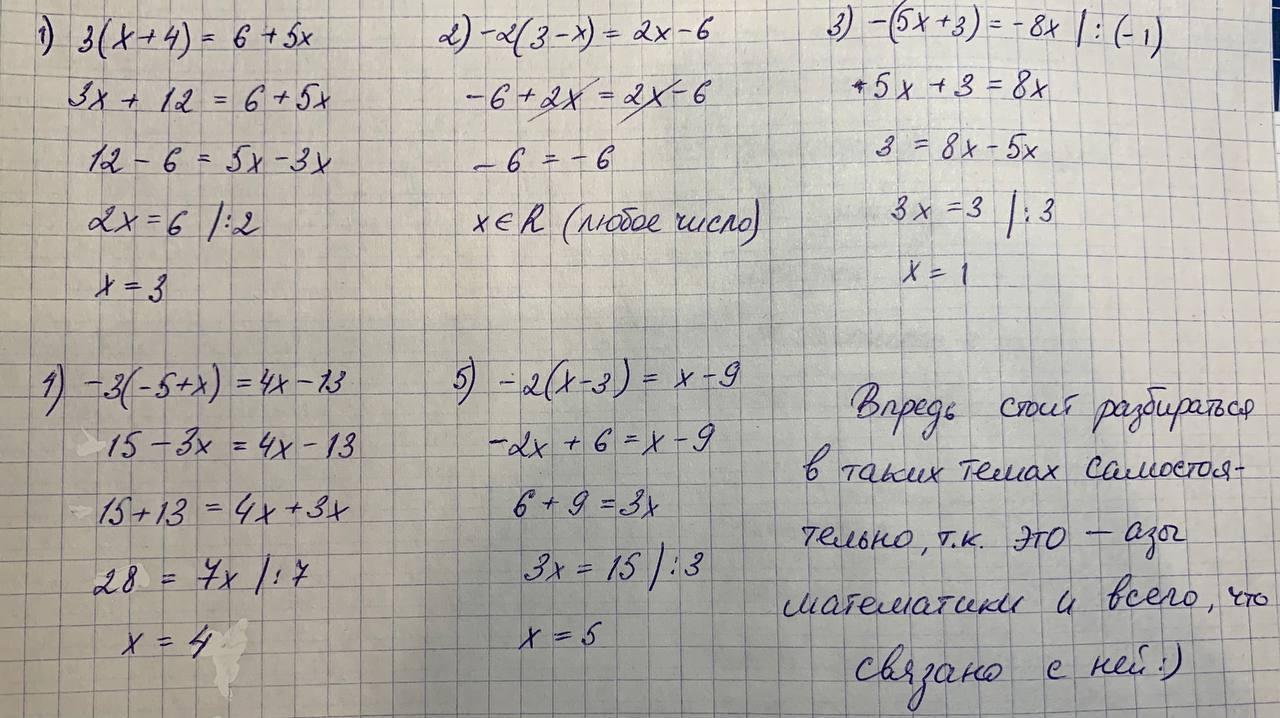 1) 3(x+4) = 6+5x
3x + 12 = 6+5x
12 - 6 = 5x-3x
2x = 6 |:2
x = 3
2) -2(3-x) = 2x-6
-6 + 2x = 2x-6
-6 = -6
x ∈ R (любое число)
3) -(5x+3) = -8x |: (-1)
5x + 3 = 8x
3 = 8x-5x
3x = 3 |:3
x = 1
4) -3(-5+x) = 4x-13
15-3x = 4x-13
15+13 = 4x+3x
28 = 7x |:7
x = 4
5) -2(x-3) = x-9
-2x + 6 = x-9
6 + 9 = 3x
3x = 15 |:3
x = 5
Впредь стоит разбираться
в таких темах самостоя-
тельно, т.к. это - азы
математики и всего, что
связано с ней :)